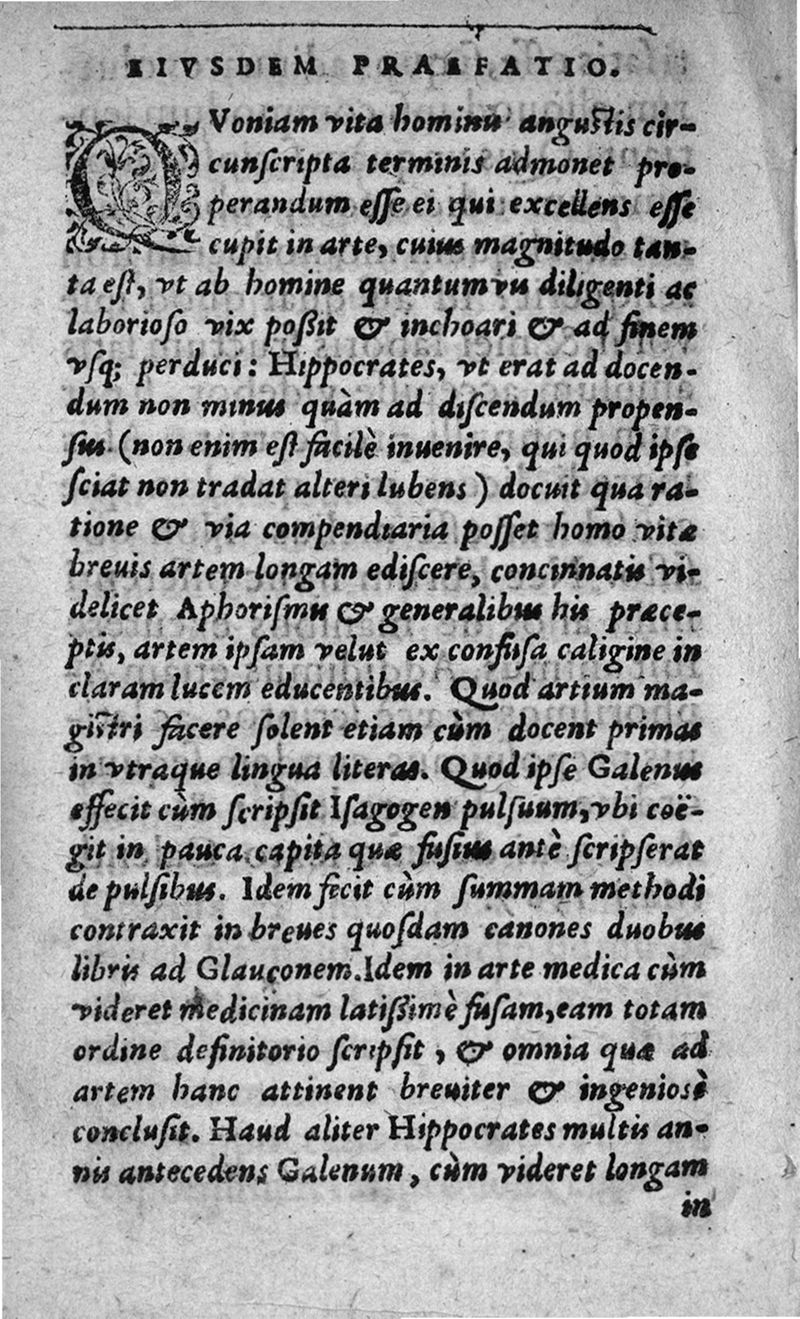 EIVSDEM PRAEFATIO.
QVoniam vita hominū angustis cir-
cunſcripta terminis admonet pro-
perandum eſſe ei qui excellens eſſe
cupit in arte, cuius magnitudo tan-
ta eſt, vt ab homine quantumvis diligenti ac
laborioſo vix poſsit & inchoari & ad finem
vſq; perduci: Hippocrates, vt erat ad docen-
dum non minus quàm ad diſcendum propen-
ſus (non enim eſt facilè inuenire, qui quod ipſe
ſciat non tradat alteri lubens) docuit qua ra-
tione & via compendiaria poſſet homo vitæ
breuis artem longam ediſcere, concinnatis vi-
delicet Aphoriſmis & generalibus his præce-
ptis, artem ipſam velut ex confuſa caligine in
claram lucem educentibus. Quod artium ma-
giſtri facere ſolent etiam cùm docent primas
in vtraque lingua literas. Quod ipſe Galenus
effecit cùm ſcripſit Iſagogen pulſuum, vbi coë-
git in pauca capita quæ fuſius antè ſcripſerat
de pulſibus. Idem fecit cùm ſummam methodi
contraxit in breues quoſdam canones duobus
libris ad Glauconem. Idem in arte medica cùm
videret medicinam latiſsimè fuſam, eam totam
ordine definitorio ſcripſit, & omnia quæ ad
artem hanc attinent breuiter & ingenioſè
concluſit. Haud aliter Hippocrates multis an-
nis antecedens Galenum, cùm videret longam
in